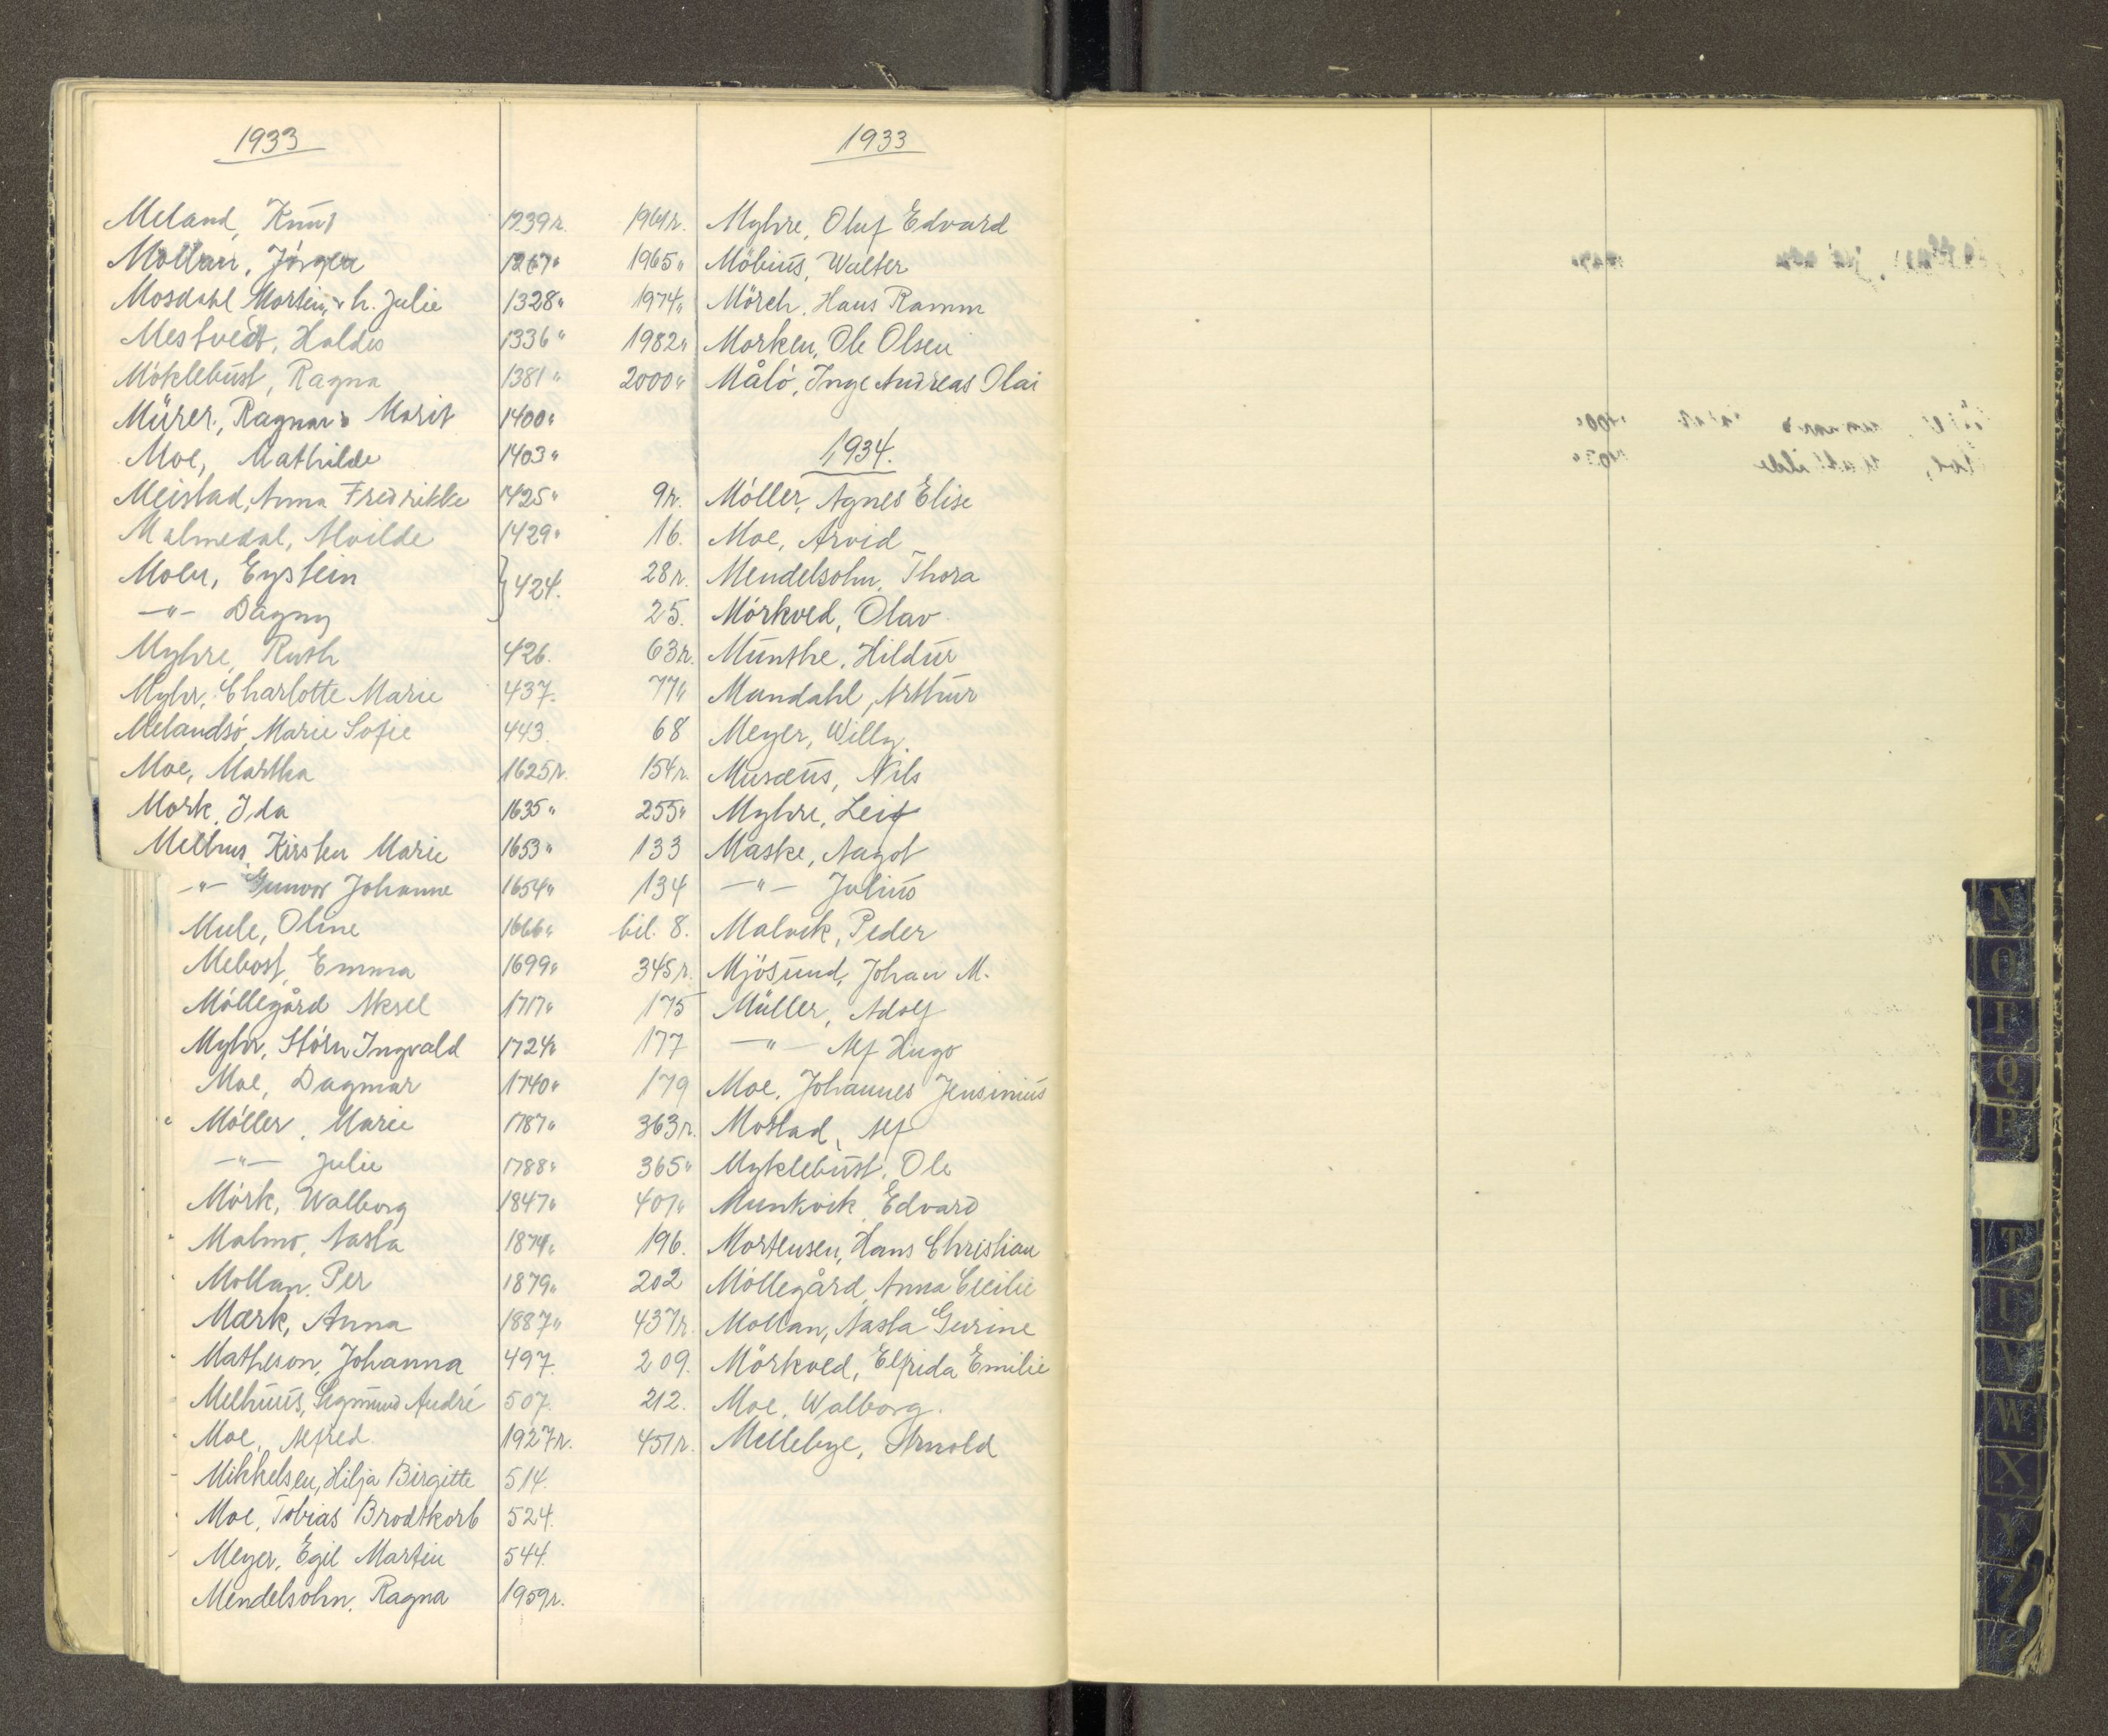 1933
Meland, Knut 1239 r.
Mollan, Jörgen 1267 "
Mosdahl Martin, & h. Julie 1328 "
Mestvedt, Haldis 1336 "
Möklebust, Ragna 1381 "
Mürer, Ragnar & Marit 1400 "
Moe, Mathilde 1403 "
Meistad, Anna Fredrikke 1425 "
Malmedal, Alvilde 1429 "
Moen, Eystein } 424.
—"— Dagny
Myhre, Ruth 426.
Myhr, Charlotte Marie 437.
Melandsö, Marie Sofie 443.
Moe, Martha 1625 r.
Mork, Ida 1635 "
Melhus, Kirsten Marie 1653 "
—"— Gunvor Johanne 1654 "
Mule, Oline 1666 "
Mebost, Emma 1699 "
Möllegård Aksel 1717 "
Myhr, Störn Ingvald 1724 "
Moe, Dagmar 1740 "
Möller, Marie 1787 "
—"— Julie 1788 "
Mörk, Walborg 1847 "
Malmo, Aasta 1874 "
Mollan, Per 1879 "
Mærk, Anna 1887 "
Matheson, Johanna 497.
Melhuus, Sigmund André 507.
Moe, Alfred. 1927 r.
Mikkelsen, Hilja Birgitte 514.
Moe, Tobias Brodtkorb 524.
Meyer, Egil Martin 544.
Mendelsohn, Ragna 1959 r.
1933
1961 r. Myhre, Oluf Edvard
1965 " Möbius, Walter
1974 " Mörch, Hans Ramm
1982 " Morken, Ole Olsen
2000 " Målö, Inge Andreas Olai
1934.
9 r. Möller, Agnes Elise
16. Moe, Arvid
28 r. Mendelsohn, Thora
25. Mörkved, Olav
63 r. Munthe, Hildur
77 " Mandahl, Arthur
68 Meyer, Willy.
154 r. Musæus, Nils
255 " Myhre, Leif
133 Maske, Aagot
134 —"— Julius
bil. 8. Malvik, Peder
345 r. Mjösund, Johan M.
175 Müller, Adolf
177 —"— Alf Hugo
179 Moe, Johannes Jensinius
363 r. Mostad, Alf
365 " Myklebust, Ole
401 " Munkvik, Edvard
196. Mortensen, Hans Christian
202 Möllegård, Anna Cecilie
437 r. Mollan, Aasta Gurine
209. Mörkved, Elfrida Emilie
212. Moe, Walborg.
451 r. Mellebye, Arnold
N
O
P
Q
R
T
U
V
W
X
Y
Z